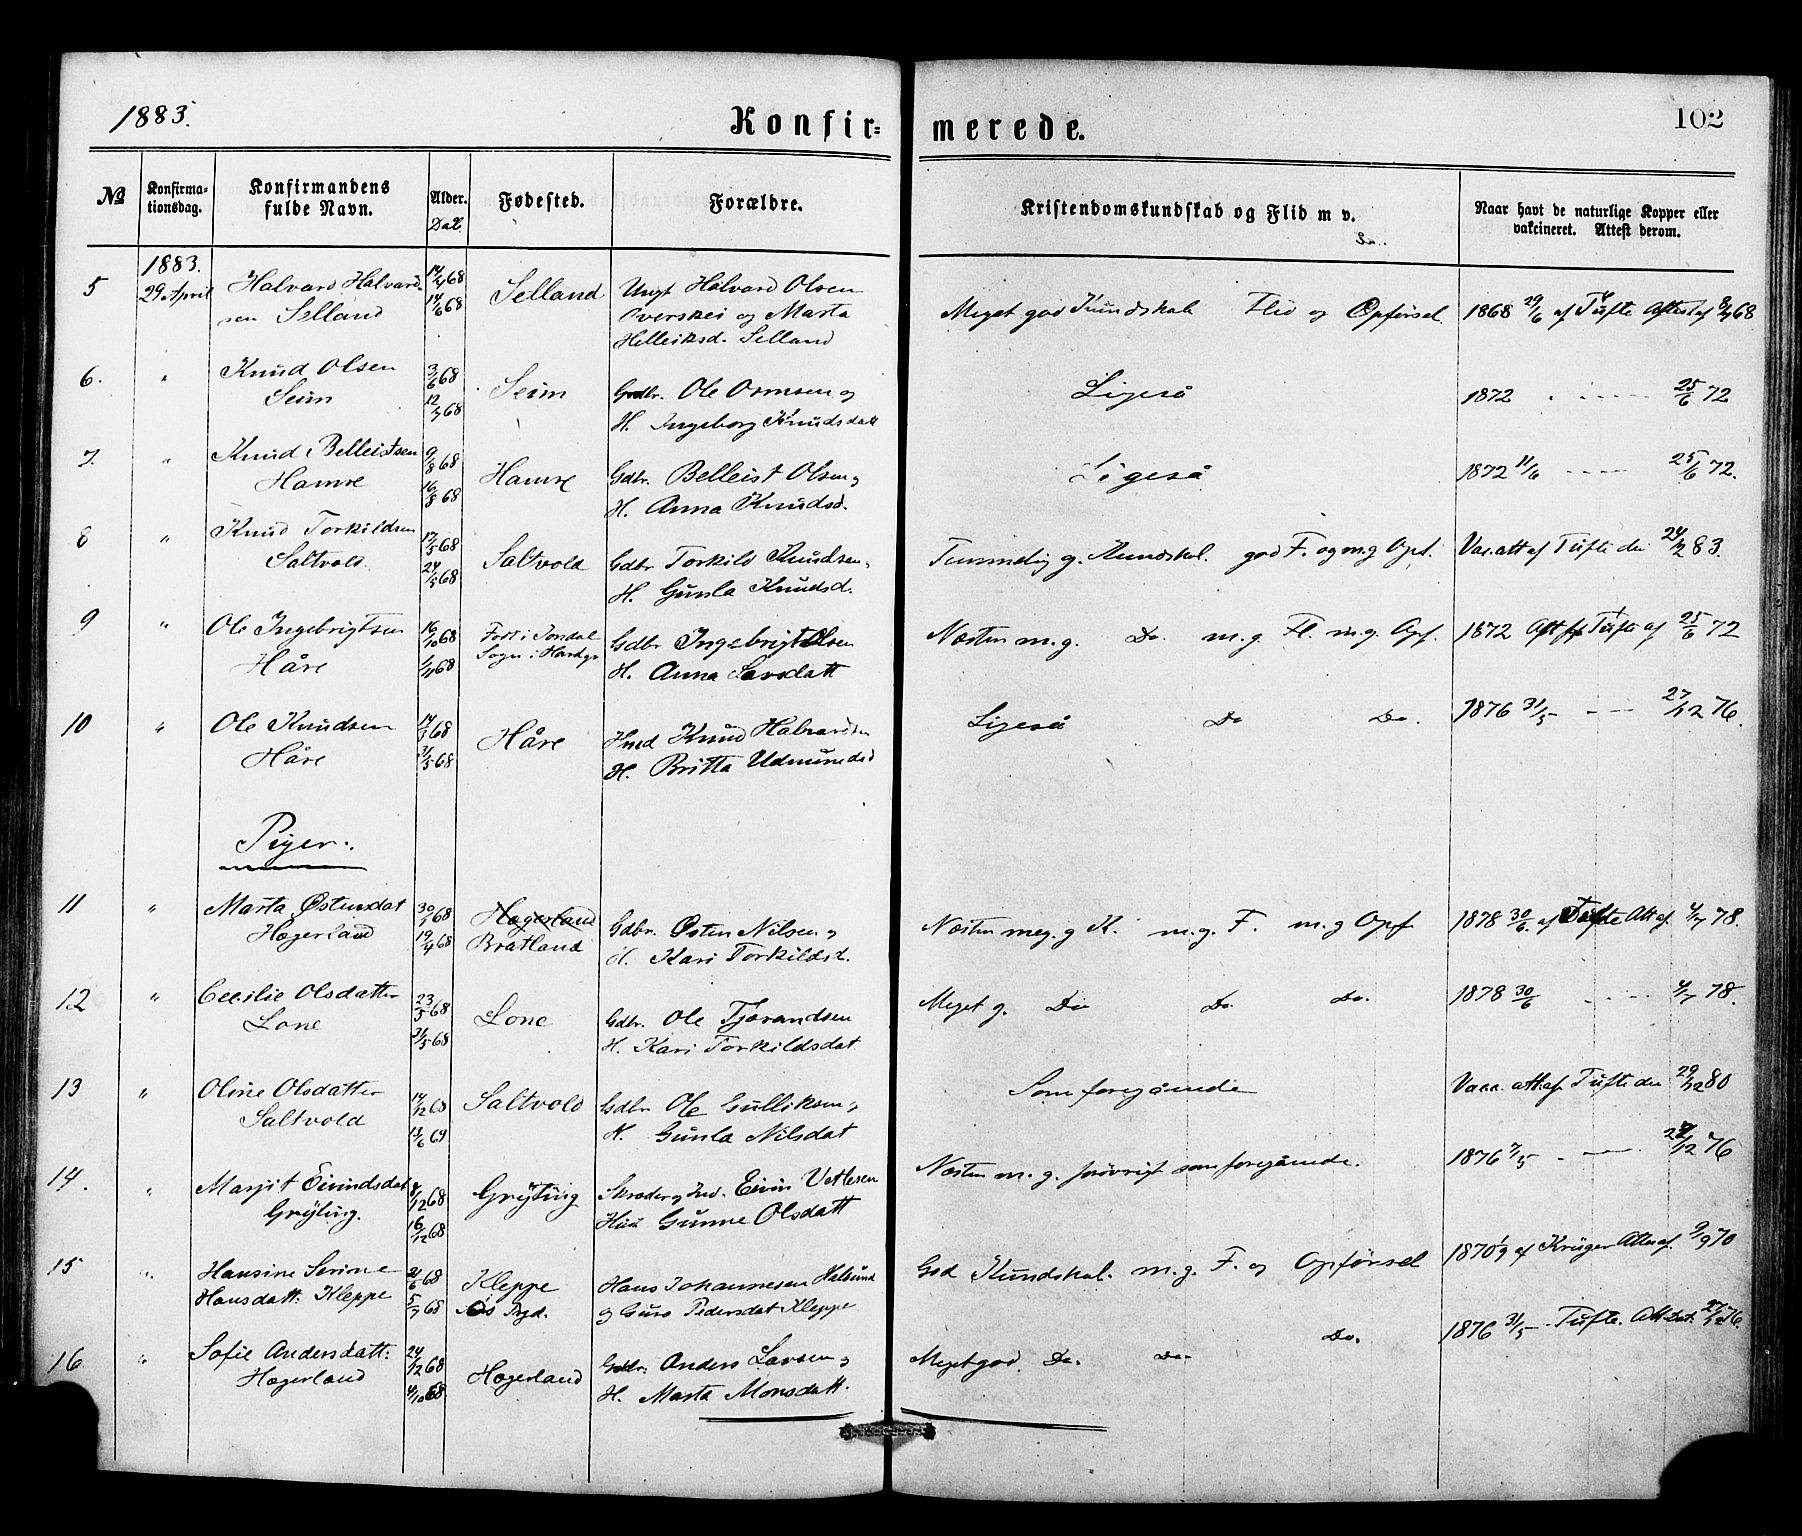 1883.
Konfir=
merede.
102
No
Konfirma=
tionsdag.
Konfirmandens
fulde Navn.
Alder.
Fødested.
Forældre.
Kristendomskundskab og Flid m v.
Naar havt de naturlige Kopper eller
vakcineret. Attest derom.
1883.
5 29 April Halvard Halvard
sen Selland
Selland
Ungk Halvard Olsen
og Marta
Helleiksd. Selland
Meget god Kundskab Flid og Opførsel
1868 29/6 af Tufte Attest af 68
6. " Knud Olsen
Seim
3/6 68
12/7 68
Seim
Gdbr. Ole Ormsen og
H. Ingeborg Knudsdatt
Ligeså
1872 25/6 72
7. " Knud Belleistsen
Hamre
9/8 68
16/8 68
Hamre
Gdbr. Belleist Olsen og
H. Anna Knudsd.
Ligeså
1872 11/6 25/6 72.
8 " Knud Torkildsen
Saltvold
17/5 68
24/5 68
Saltvold
Gdbr Torkild Knudsen
H. Gunla Knudsd.
Temmelig g. Kundskab. god F. og m.g Opf.
Vac. att af Tufte den 83.
9 " Ole Ingebrigtsen
Håre
16/10 68
1/11 68
Født i Jondal
Sogn i Hardgr
Gdbr Ingebrigt Olsen
H. Anna Larsdatt
Næsten m.g. Do. m.g. Fl. m.g. Opf.
1872 Att Tufte af 25/6 72
10 " Ole Knudsen
Håre
31/5 68
Håre
Hmd Knud Halvardsen
H. Britta Udmundsd
Ligeså Do Do.
1876 31/5 27/12 76.
Piger.
11 " Marta Østensdat
Hogerland
19/4 68
Hogerland
Bratland
Gdbr. Østen Nilsen og
H. Kari Torkildsd.
Næsten meg. g K. m.g. F. m.g Opf
1878 30/6. af Tufte Att af 4/7 78.
12 " Cecilie Olsdatter
Lone
23/5 68
31/5 68
Lone
Gdbr. Ole Tjørandsen
H. Kari Torkildsdat
Meget g. Do Do. Do.
1878 30/6 4/7 78.
13 " Oline Olsdatter
Saltvold
Saltvold
Gdbr Ole Gulliksen og
H. Gunla Nilsdat
Som foregående
Vacc. att af Tufte den 29/12 80
14. " Marjit Eivindsdat
Grýting.
4/12 68
16/12 68
Grýting
Skræder og Ind. Eivin Vetlesen
Hus Gunne Olsdatt
Næsten m.g. forøvrigt som foregående.
1876 7/5 27/12 76
15 " Hansine Serine
Hansdatt: Kleppe
21/6 68
5/7 68
Kleppe
Ås Prgd.
Hans Johannesen Halsund
og Guro Pedersdat Kleppe
God Kundskab. m.g. F. og Opførsel
1870 af Krüger Attest af 9/9 70
16 " Sofie Andersdatt:
Hogerland
68
4/10 68
Hogerland
Gdbr. Anders Larsen og
H. Marta Monsdatt.
Meget god. Do. Do. Do.
1876 31/5 Tufte. Att dat 27/12 76.